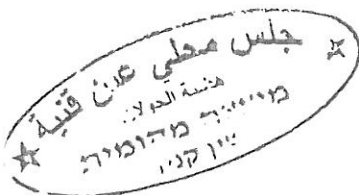 جلس محلي عين قنية
هضبة الجولان
מועצה מקומית
עין קניי